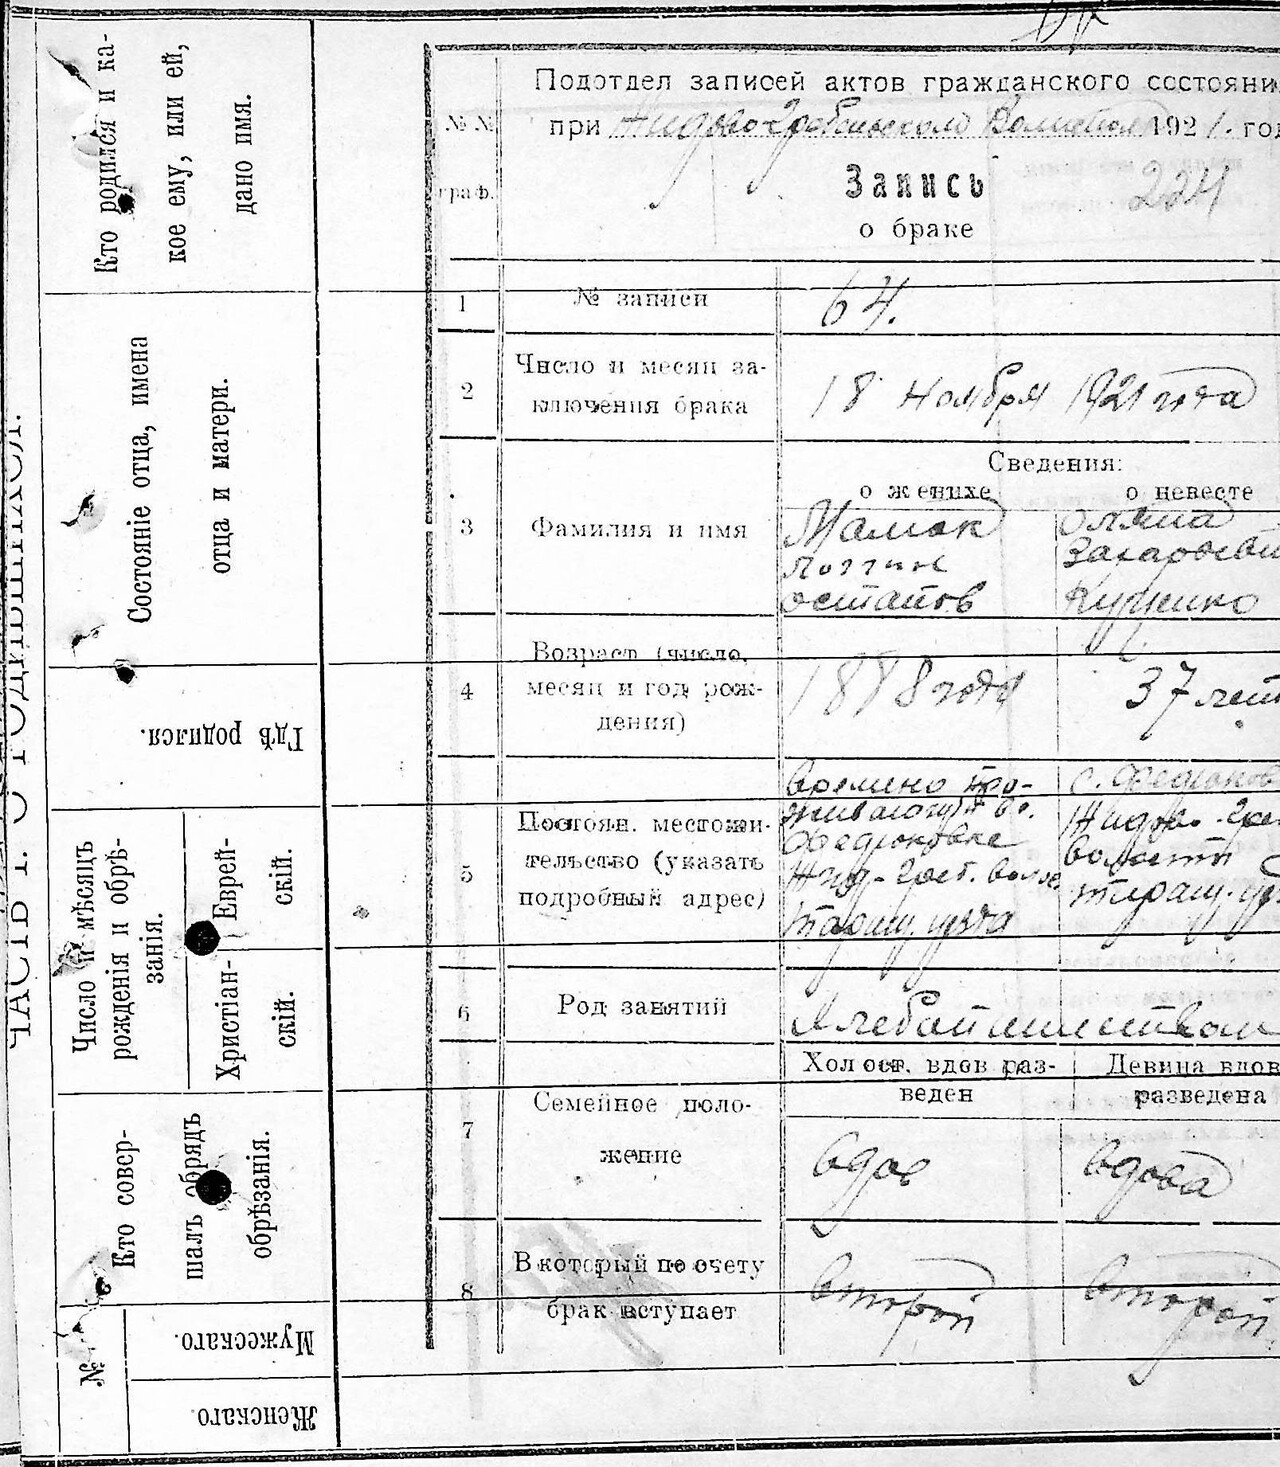 ЧАСТЬ I. О РОДИВШИХСЯ.
Кто родился и ка-
кое ему, или ей,
дано имя.
Состояніе отца, имена
отца и матери.
Гдѣ родился.
Число и мѣсяцъ
рожденія и обрѣ-
занія.
Еврей-
скій.
Христіан-
скій.
Кто совер-
шалъ обрядъ
обрѣзанія.
№
Мужескаго.
Женскаго.
Подотдел записей актов гражданского состояни
при Жидово-Гребельском 1921. год
№№
граф.
Запись
224
о браке
1
№ записи
64.
2
Число и месяц за-
ключения брака
18 Ноября 1921 года
3
Фамилия и имя
Сведения:
о женихе
о невесте
Мамок
Логгин
Остапов
Куценко
4
Возраст (число,
месяц и год рож-
дения)
1888 года
37 лет
5
Постоян. местожи-
тельство (указать
подробный адрес)
времено про-
живающий во.
Федюковке
Жид-Греб. воло
Таращ. уезда
с. Федюков
Жидов-Греб
волости
Таращ. уез
6
Род занятий
Хлебопашеством
7
Семейное поло-
жение
Холост. вдов раз-
веден
Девица вдов
разведена
вдов
вдова
8
В который по счету
брак вступает
второй
второй